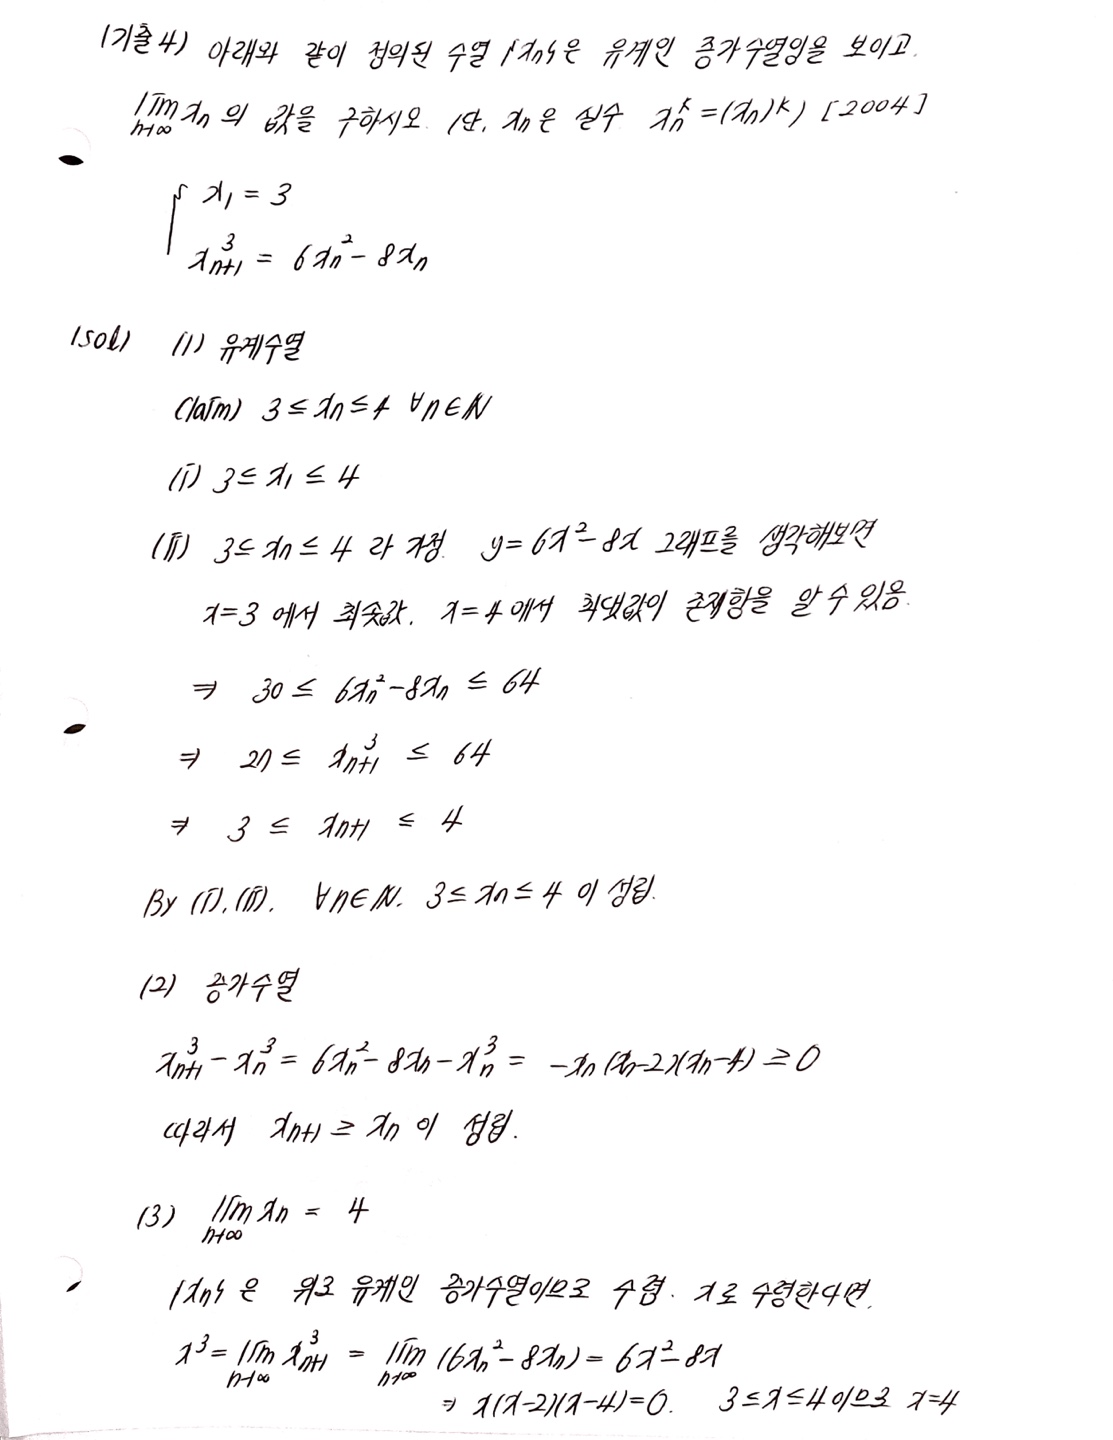 (기출4) 아래와 같이 정의된 수열 {xₙ}은 유계인 증가수열임을 보이고.
lim_{n→∞} xₙ의 값을 구하시오. (단, xₙ은 실수 xₙᵏ=(xₙ)ᵏ) [2004]
{ x₁ = 3
xₙ₊₁³ = 6xₙ² - 8xₙ
(sol) (1) 유계수열
Claim) 3 ≤ xₙ ≤ 4 ∀n∈ℕ
(i) 3 ≤ x₁ ≤ 4
(ii) 3 ≤ xₙ ≤ 4 라 가정. y = 6x² - 8x 그래프를 생각해보면
x=3 에서 최솟값, x=4 에서 최댓값이 존재함을 알 수 있음.
⇒ 30 ≤ 6xₙ² - 8xₙ ≤ 64
⇒ 27 ≤ xₙ₊₁³ ≤ 64
⇒ 3 ≤ xₙ₊₁ ≤ 4
By (i), (ii), ∀n∈ℕ. 3 ≤ xₙ ≤ 4 이 성립.
(2) 증가수열
xₙ₊₁³ - xₙ³ = 6xₙ² - 8xₙ - xₙ³ = -xₙ(xₙ-2)(xₙ-4) ≥ 0
따라서 xₙ₊₁ ≥ xₙ 이 성립.
(3) lim_{n→∞} xₙ = 4
{xₙ}은 위로 유계인 증가수열이므로 수렴. x로 수렴한다면,
x³ = lim_{n→∞} xₙ₊₁³ = lim_{n→∞} (6xₙ² - 8xₙ) = 6x² - 8x
⇒ x(x-2)(x-4)=0. 3≤x≤4 이므로 x=4